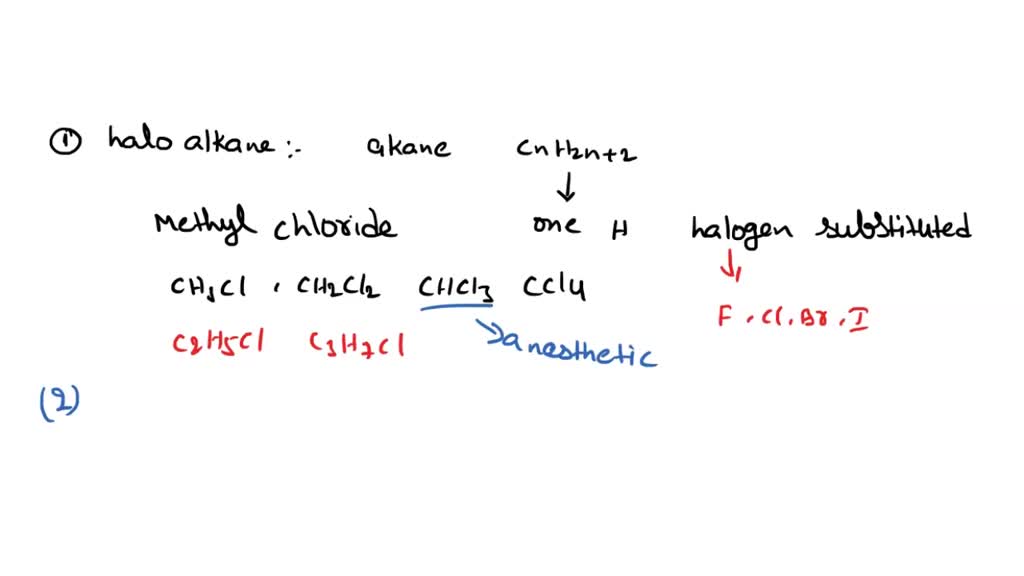 ① halo alkane :- alkane CnH2n+2
↓
Methyl chloride one H halogen substituted
CH3Cl , CH2Cl2 CHCl3 CCl4 ↓
C2H5Cl C3H7Cl → anesthetic F, Cl, Br, I
(2)